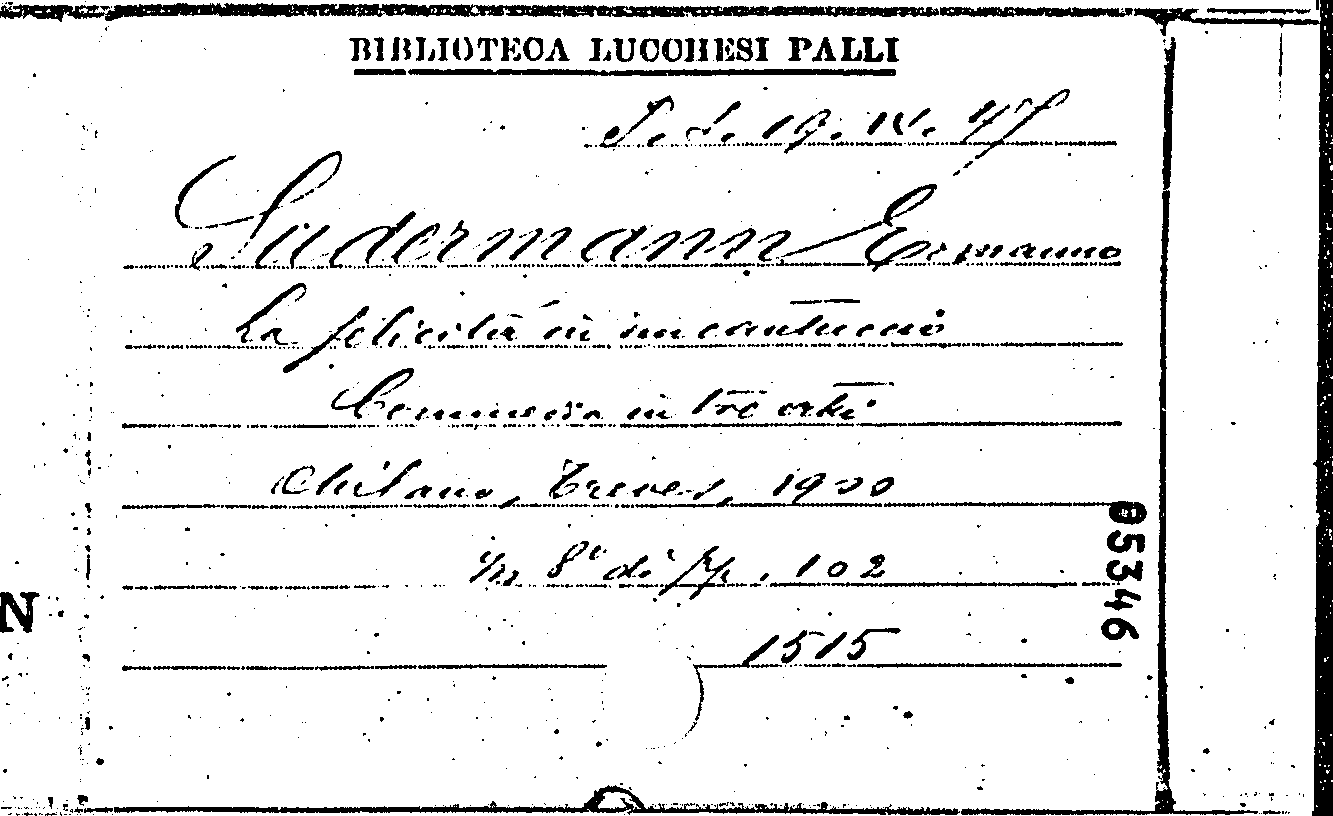 BIBLIOTECA LUCCHESI PALLI
19. IV. 47
Sudermann Ermanno
La felicità in un cantuccio
Commedia in tre atti
Milano, Treves, 1900
In 8° di pp. 102
1515
05346
N